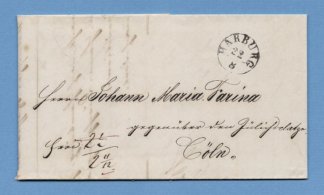 HARBURG
22
8
Herrn Johann Maria Farina
gegenüber dem Jülichsplatze
Cöln.